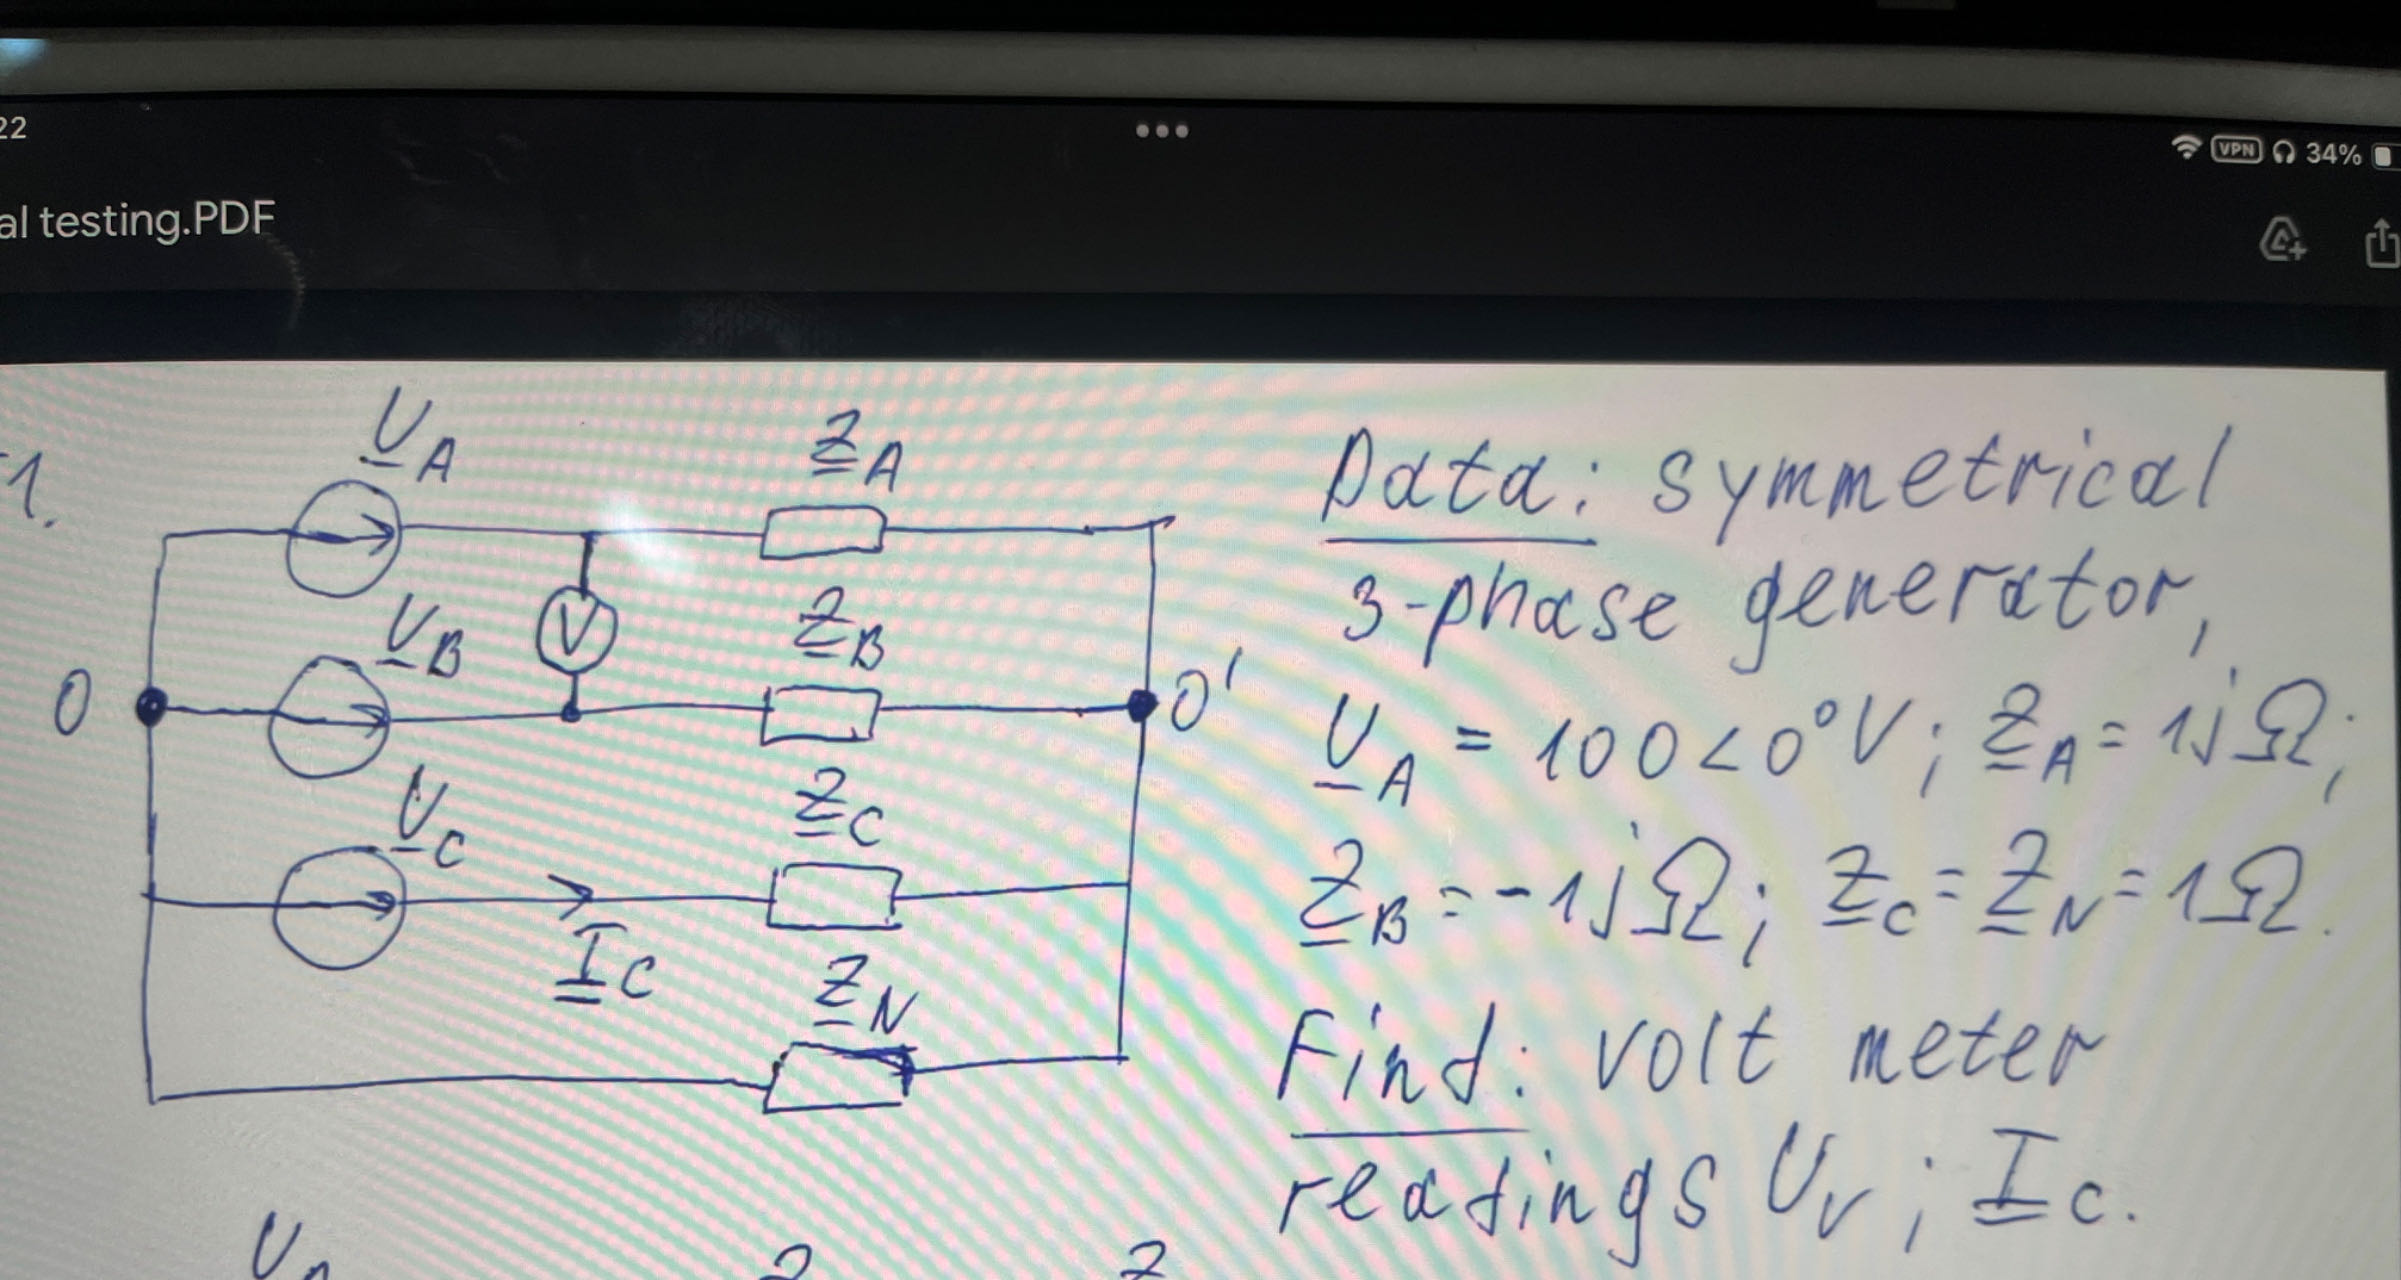 22
VPN 34%
al testing.PDF
1.
U_A
Z_A
U_B
V
Z_B
0
0'
U_C
Z_C
I_C
Z_N
Data: symmetrical
3-phase generator,
U_A = 100<0°V; Z_A = 1jΩ;
Z_B = -1jΩ; Z_C = Z_N = 1Ω.
Find: volt meter
readings U_V; I_C.